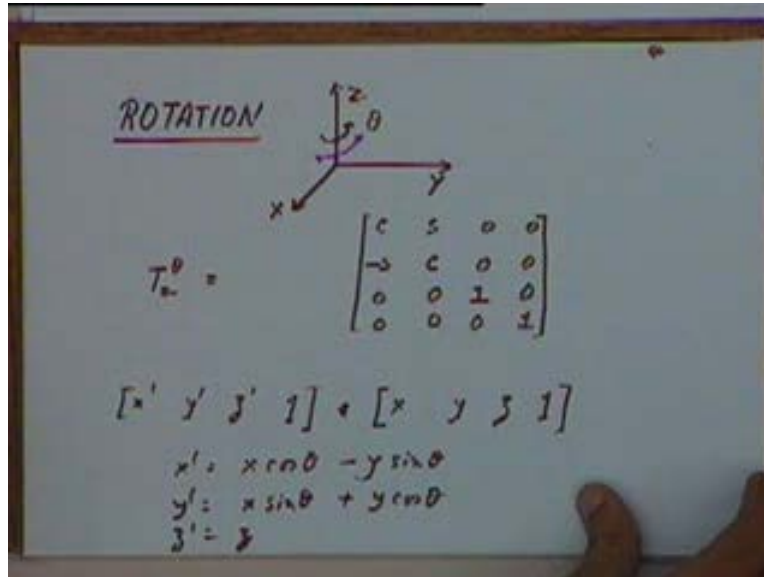 ROTATION
z
θ
y
x
T θ =
[c s 0 0
-s c 0 0
0 0 1 0
0 0 0 1]
[x' y' z' 1] = [x y z 1]
x' = x cos θ - y sin θ
y' = x sin θ + y cos θ
z' = z